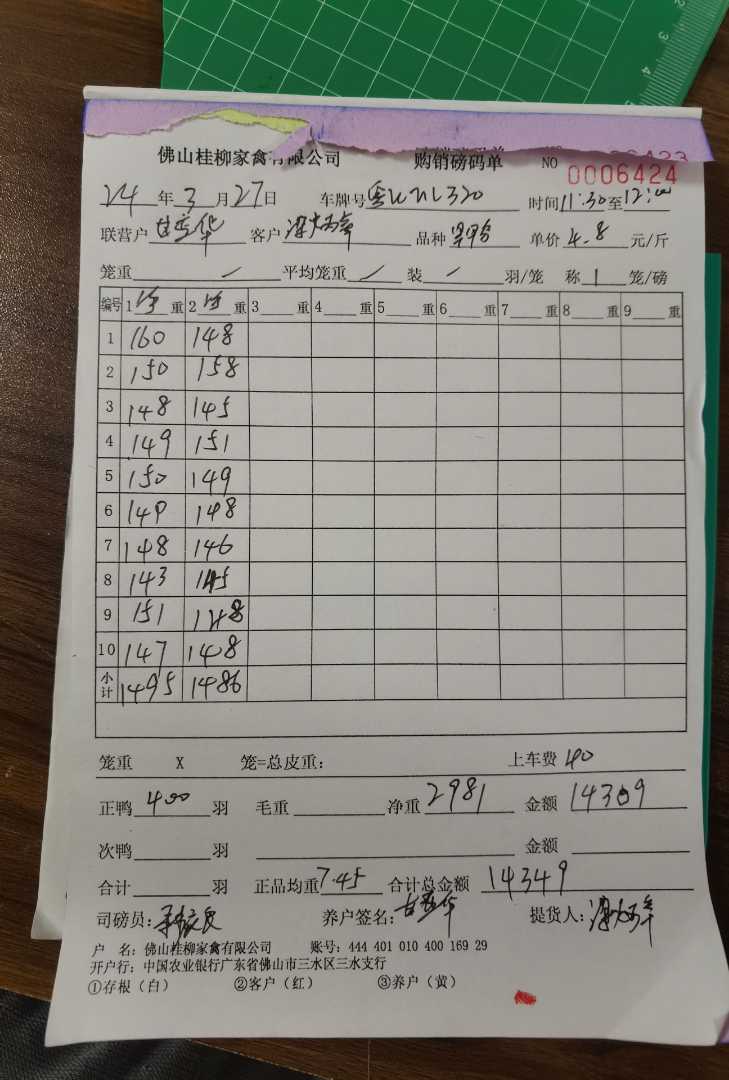 佛山桂柳家禽有限公司 购销磅码单 NO 0006424
24年3月27日 车牌号 时间11:30至12:00
联营户 客户 品种 单价4.8元/斤
笼重 / 平均笼重 / 装 / 羽/笼 称 1 笼/磅
编号 1净重 2净重 3重 4重 5重 6重 7重 8重 9重
1 160 148
2 150 158
3 148 145
4 149 151
5 150 149
6 149 148
7 148 146
8 143 145
9 151 148
10 147 148
小计 1495 1486
笼重 X 笼=总皮重: 上车费 40
正鸭 400 羽 毛重 净重 2981 金额 14309
次鸭 羽 金额
合计 羽 正品均重 7.45 合计总金额 14349
司磅员: 养户签名: 提货人:
户 名: 佛山桂柳家禽有限公司 账号: 444 401 010 400 169 29
开户行: 中国农业银行广东省佛山市三水区三水支行
①存根(白) ②客户(红) ③养户(黄)